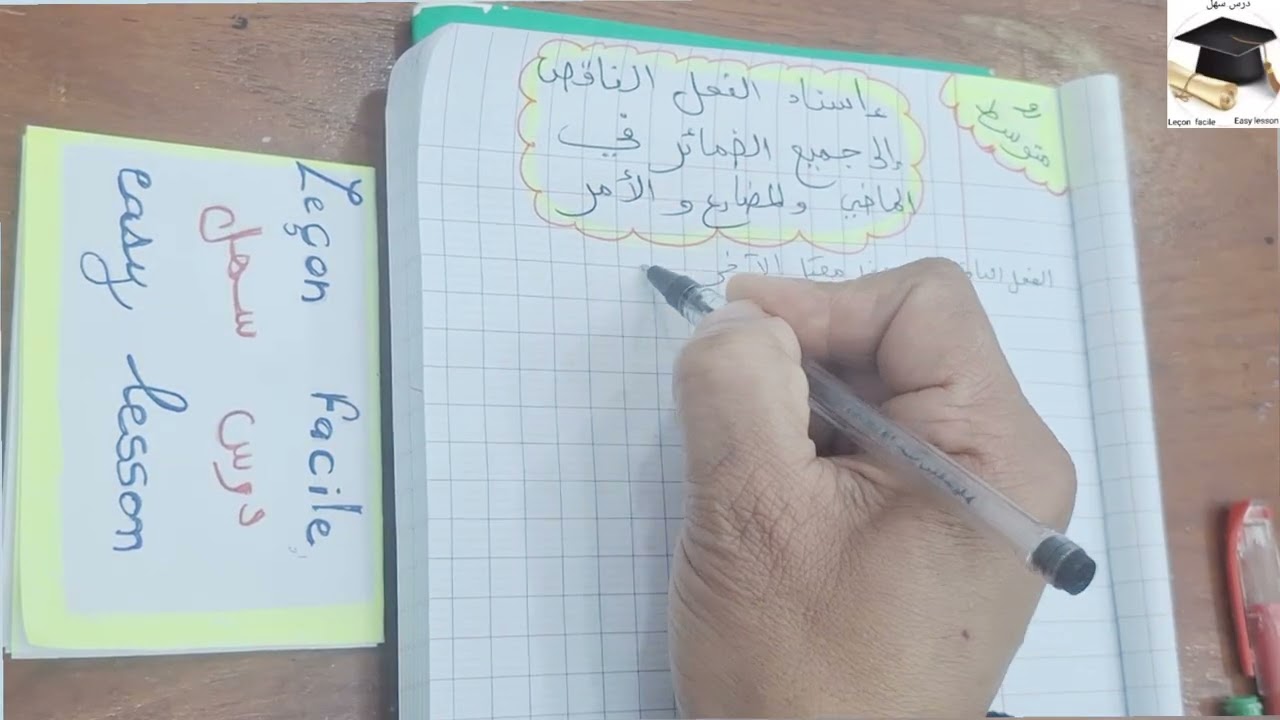 درس سهل
Leçon facile Easy lesson
متوسط
إسناد الفعل الناقص
إلى جميع الضمائر في
الماضي والمضارع و الأمر
الفعل معتل الآخر
Leçon Facile
درس سهل
easy lesson